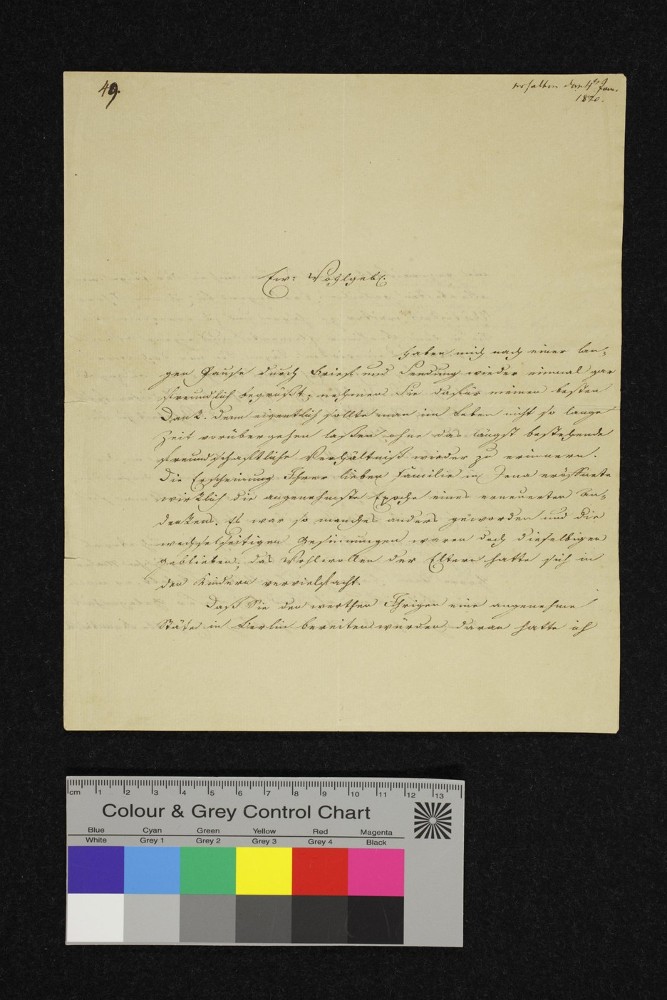 49.
erhalten den 4t Jan.
1820.
Ew: Wohlgeb.
haben mich nach einer lan-
gen Pause durch Brief und Sendung wieder einmal gar
freundlich begrüßt; nehmen Sie dafür meinen besten
Dank. Denn eigentlich sollte man im Leben nicht so lange
Zeit vorübergehen lassen ohne das längst bestehende
freundschaftliche Verhältniß wieder zu erinnern.
Die Erscheinung Ihrer lieben Familie in Jena eröffnete
wirklich die angenehmste Epoche eines erneuerten An-
denkens. Es war so manches anders geworden und die
wechselseitigen Gesinnungen waren doch dieselbigen
geblieben, das Wohlwollen der Eltern hatte sich in
den Kindern vervielfacht.
Daß Sie den werthen Ihrigen eine angenehme
Stäte in Berlin bereiten würden, daran hatte ich
cm 1 2 3 4 5 6 7 8 9 10 11 12 13
Colour & Grey Control Chart
Blue Cyan Green Yellow Red Magenta
White Grey 1 Grey 2 Grey 3 Grey 4 Black